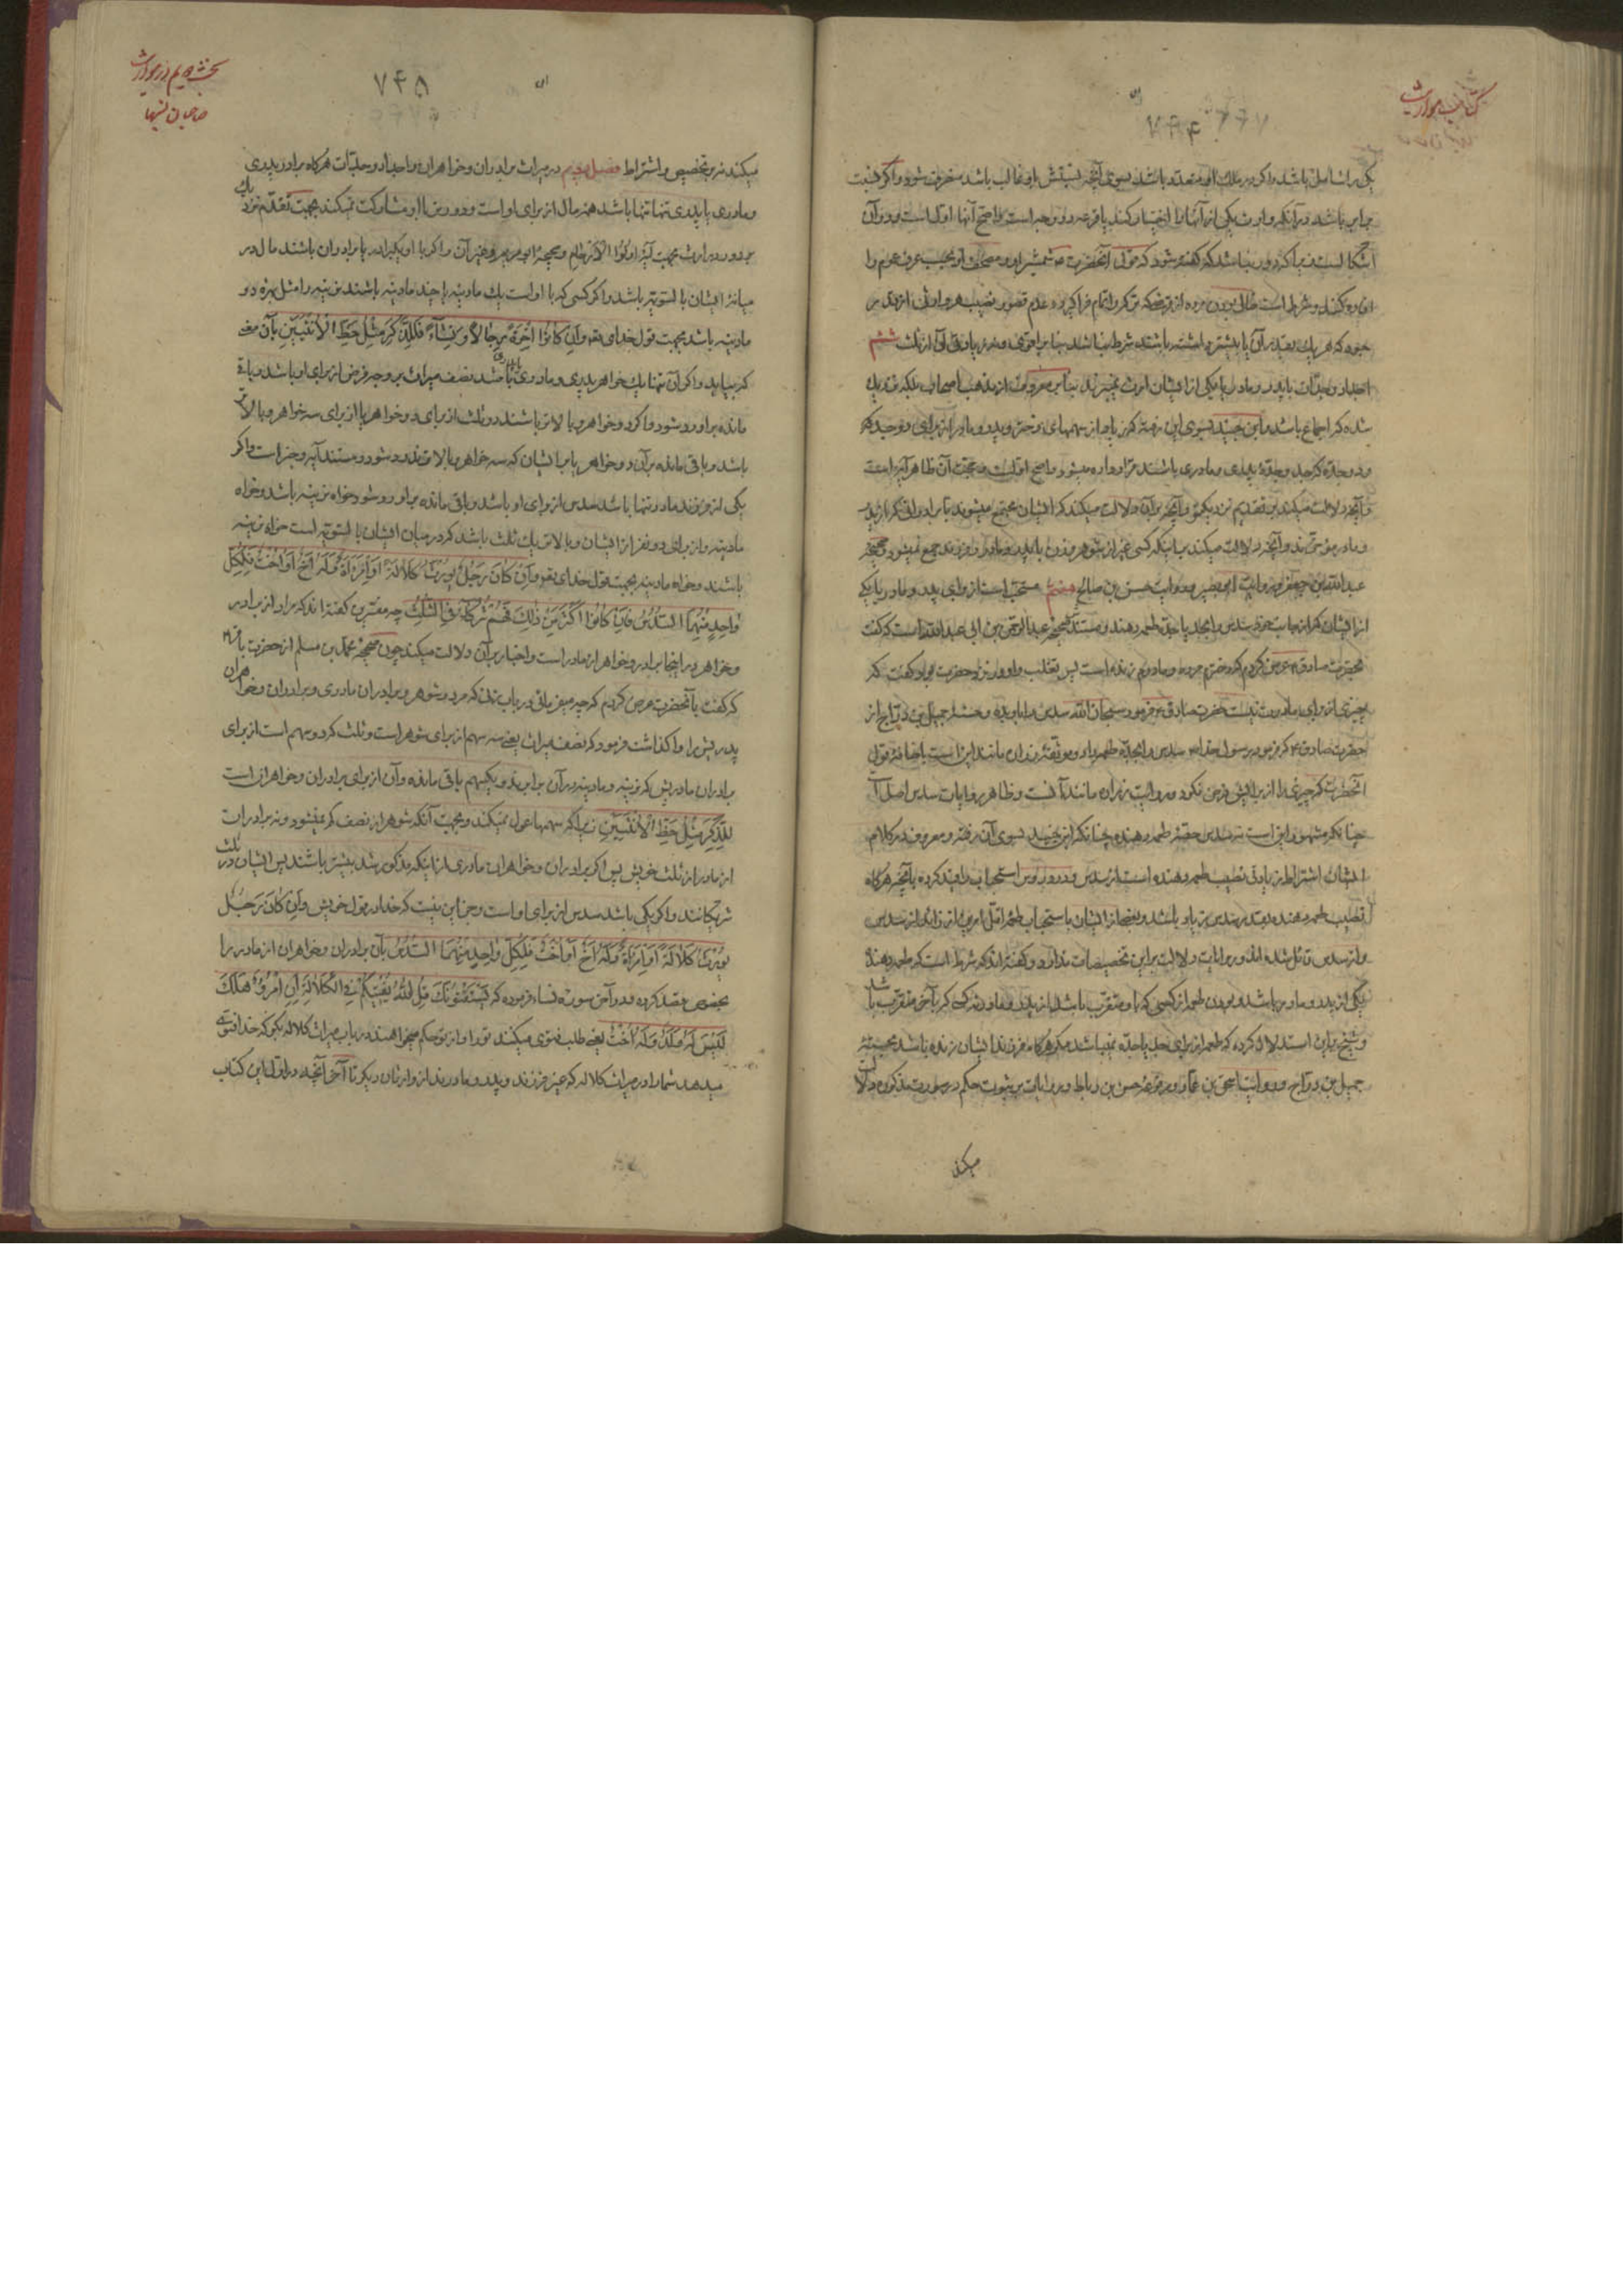 کتاب مواریث
۷۴۴
یکی را شامل باشد و اگر در ملك او متعدد باشد بسوی آنچه نسبتش باو غالب باشد منصرف شود و اگر نسبت
برابر باشد در آنکه وارث یکی از آنها را اختیار کند یا قرعه دو وجه است واضح آنها اول است و در آن
انحضرت شمشیر او و مصحف او بحسب عرف عموم را
افاده کند و شرط است خالی بودن مرده از قرضکه ترکه را تمام فرا گیرد و عدم قصور نصیب هر وارثی از قدر
حبوه که هر یك بقدر آن یا بیشتر داشته باشند شرط نباشد بنا بر اقوی و نه زیادتی آن از ثلث ششم
اجداد و جدات با پدر و مادر یا یکی از ایشان ارث نمیبرند بنا بر معروف از مذهب اصحاب بلکه نزدیك
شده که اجماع باشد و ابن جنید بسوی این رفته که زیاد از سهمهای دختر و پدر و مادر از برای دو جد و
دو جده که جد و جده پدری و مادری باشند قرار داده میشود واضح اول است بجهت آن ظاهر آیه است
و آنچه دلالت میکند بر تقدیم نزدیکتر و آنچه بر آن دلالت میکند که ایشان مجتمع میشوند با برادرانی که باز پدر
و مادر مؤخرند و آنچه دلالت میکند باینکه کسی غیر از شوهر و زن با پدر و مادر و فرزند جمع نمیشود و صحیحه
عبدالله بن جعفر و روایت ابو بصیر و روایت حسن بن صالح هفتم مستحب است از برای پدر و مادر یا یکی
از ایشان که از جانب خود سدس را بجد یا جده طعمه دهند و مستند صحیحه عبدالرحمن بن ابی عبدالله است که گفت
بحضرت صادق ع عرض کردم که دختر مرده و مادرم زنده است پس تغلب وارد نزد حضرت بود گفت که
چیزی از برای مادرت نیست حضرت صادق ع فرمود سبحان الله سدس را باو بده و جمیل بن دراج از
حضرت صادق ع که فرمود رسول خدا ص سدس را بجده طعمه داد و موثقه زراره مانند این است باضافه قول
انحضرت که چیزی را از برایش فرض نکرد و روایت زراره مانند آنست و ظاهر روایات سدس اصل است
چنانکه مشهور این است نه سدس حصّه طعمه دهنده چنانکه ابن جنید بسوی آن رفته و معروف در کلام
ایشان اشتراط زیادتی نصیب طعمه دهنده است از سدس و در دروس استحباب را مقید کرده بآنچه هرگاه
نصیب طعمه دهنده بقدر سدس زیاد باشد و بعضی از ایشان باستحباب طعمه اقل امرین از زائد از سدس
و از سدس قائل شده اند و روایات دلالت بر این تخصیصات ندارد و گفته اند که شرط است که طعمه دهنده
یکی از پدر و مادر باشد و بودن طعمه از کسی که باو متقرب باشد از پدر و مادر نه کسی که بآخر متقرب باشد
و شیخ باین استدلال کرده که طعمه از برای جد یا جده نمیباشد مگر هرگاه فرزند ایشان زنده باشد بصحیحه
جمیل بن دراج و روایت اسحق بن عمار و مرفوعه حسن بن رباط و روایات بر ثبوت حکم در صورت مذکوره دلالت
میکند
بخش دویم در مواریث
صاحبان نسبها
۷۴۵
میکند نه بر تخصیص و اشتراط فصل دویم در میراث برادران و خواهران و اجداد و جدات هرگاه برادر پدری
و مادری یا پدری تنها باشد همه مال از برای اوست و دورتر با او مشارکت نمیکند بجهت تقدم نزدیك
بر دور در ارث بجهت آیه اولوا الارحام و صحیحه ابو مریم و غیر آن و اگر با او یکبرادر یا برادران باشند مال در
میانه ایشان بالسّویه باشد و اگر کسی که با اوست یك مادینه یا چند مادینه باشند نرینه را مثل بهره دو
مادینه باشد بجهت قول خدای تعه وان کانوا اخوة رجالا و نساء فللذکر مثل حظ الانثیین بآن مرتبه
که بیاید و اگر آن تنها یك خواهر پدری و مادری باشد نصف میراث بر وجه فرض از برای او باشد و باقی
مانده بر او رد شود و اگر دو خواهر و بالاتر باشند دو ثلث از برای دو خواهر یا از برای سه خواهر و بالاتر
باشد و باقی مانده بر آن دو خواهر یا بر ایشان که سه خواهر و بالاترند رد شود و مستند آیه و خبر است و اگر
یکی از فرزند مادر تنها باشد سدس از برای او باشد و باقی مانده بر او رد شود خواه نرینه باشد و خواه
مادینه و از برای دو نفر از ایشان و بالاتر یك ثلث باشد که در میان ایشان بالسّویه است خواه نرینه
باشند و خواه مادینه بجهت قول خدای تعه وان کان رجل یورث کلالة او امرأة و له اخ او اخت فلکل
واحد منهما السدس فان کانوا اکثر من ذلك فهم شرکاء فی الثلث چه مفسرین گفته اند که مراد از برادر
و خواهر در اینجا برادر و خواهر از مادر است و اخبار بر آن دلالت میکند چون صحیحه محمد بن مسلم از حضرت باقر ع
که گفت بآنحضرت عرض کردم که چه میفرمائی در باب زنی که مرد و شوهر و برادران مادری و برادران و خواهران
پدریش را واگذاشت فرمود که نصف میراث یعنی سه سهم از برای شوهر است و ثلث که دو سهم است از برای
برادران مادریش که نرینه و مادینه در آن برابرند و یکسهم باقی مانده و آن از برای برادران و خواهران است
للذکر مثل حظ الانثیین زیرا که سهمها عول نمیکند و بجهت آنکه شوهر از نصف کم نمیشود و نه برادران
از مادر از ثلث خویش پس اگر برادران و خواهران مادری از اینکه مذکور شد بیشتر باشند پس ایشان در ثلث
شریکانند و اگر یکی باشد سدس از برای اوست و جز این نیست که خدا در قول خویش وان کان رجل
یورث کلالة او امرأة وله اخ او اخت فلکل واحد منهما السدس بآن برادران و خواهران از مادر را
بخصوص قصد کرده و در آخر سوره نساء فرموده که یستفتونك قل الله یفتیکم فی الکلالة ان امرؤ هلك
لیس له ولد وله اخت یعنی طلب فتوی میکنند تو را و از تو حکم میخواهند در باب میراث کلاله بگو که خدا فتوی
میدهد شما را در میراث کلاله که غیر فرزند و پدر و مادرند از وارثان دیگر تا آخر آنچه در اول این کتاب